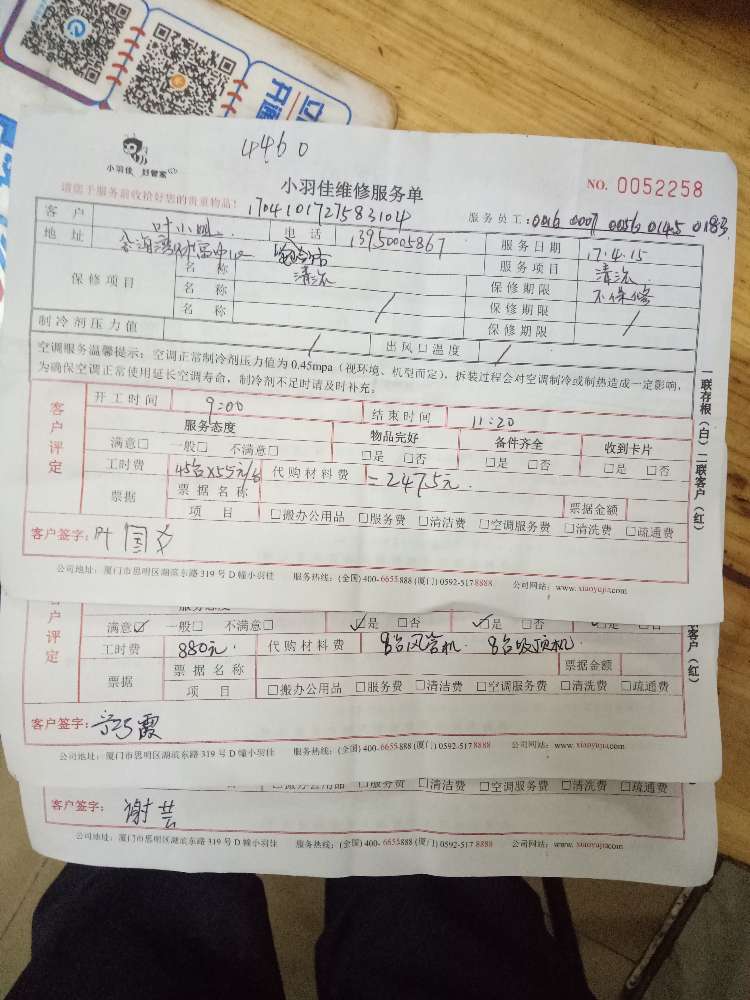 4460
小羽佳 好管家
小羽佳维修服务单
NO. 0052258
请您于服务前收拾好您的贵重物品!
1704101727583104
服务员工: 0016 0007 0056 0145 0183
客户 叶小姐 电话 13950005867 服务日期 17.4.15
地址 金海湾财富中心 服务项目 清洗
保修项目 名称 清洗 保修期限 不保修
名称 / 保修期限 /
名称 保修期限
制冷剂压力值 / 出风口温度 /
空调服务温馨提示:空调正常制冷剂压力值为0.45mpa(视环境、机型而定),拆装过程会对空调制冷或制热造成一定影响,
为确保空调正常使用延长空调寿命,制冷剂不足时请及时补充。
客户评定
开工时间 9:00 结束时间 11:20
服务态度 物品完好 备件齐全 收到卡片
满意□ 一般□ 不满意□ □是 □否 □是 □否 □是 □否
工时费 45台×55元/台 代购材料费 =2475元.
票据 票据名称 票据金额
项目 □搬办公用品 □服务费 □清洁费 □空调服务费 □清洗费 □疏通费
客户签字:叶国文
一联存根(白)二联客户(红)
公司地址:厦门市思明区湖滨东路319号D幢小羽佳 服务热线:(全国)400-6655888(厦门)0592-5178888 公司网站:www.xiaoyujia.com
服务态度
户评定
满意☑ 一般□ 不满意□ ☑是 □否 ☑是 □否 ☑是 □否
工时费 880元. 代购材料费 8台风管机. 8台吸顶机.
票据 票据名称 票据金额
项目 □搬办公用品 □服务费 □清洁费 □空调服务费 □清洗费 □疏通费
客户签字:
客户(红)
公司地址:厦门市思明区湖滨东路319号D幢小羽佳 服务热线:(全国)400-6655888(厦门)0592-5178888 公司网站:www.xiaoyujia.com
□搬办公用品 □服务费 □清洁费 □空调服务费 □清洗费 □疏通费
客户签字: 谢芸
公司地址:厦门市思明区湖滨东路319号D幢小羽佳 服务热线:(全国)400-6655888(厦门)0592-5178888 公司网站:www.xiaoyujia.com